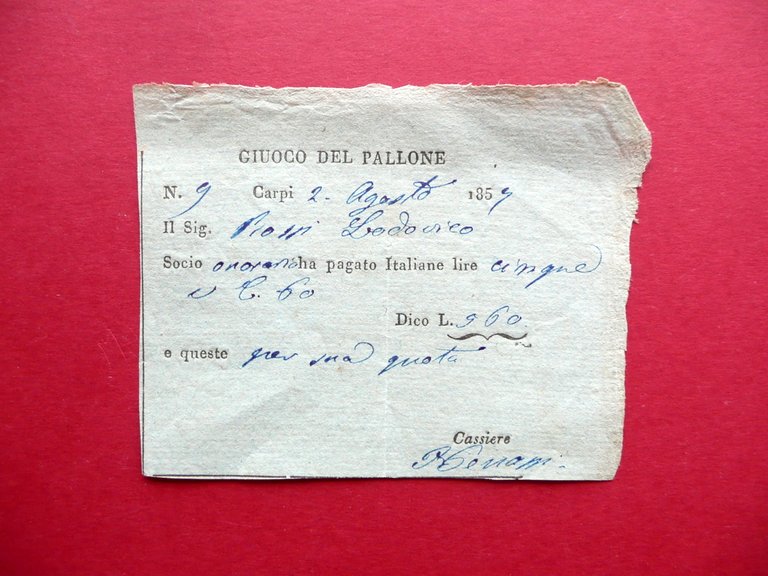 GIUOCO DEL PALLONE
N. 9 Carpi 2. Agosto 1857
Il Sig. Rossi Lodovico
Socio onorario ha pagato Italiane lire cinque
e C. 60
Dico L. 5 60
e queste per sua quota
Cassiere